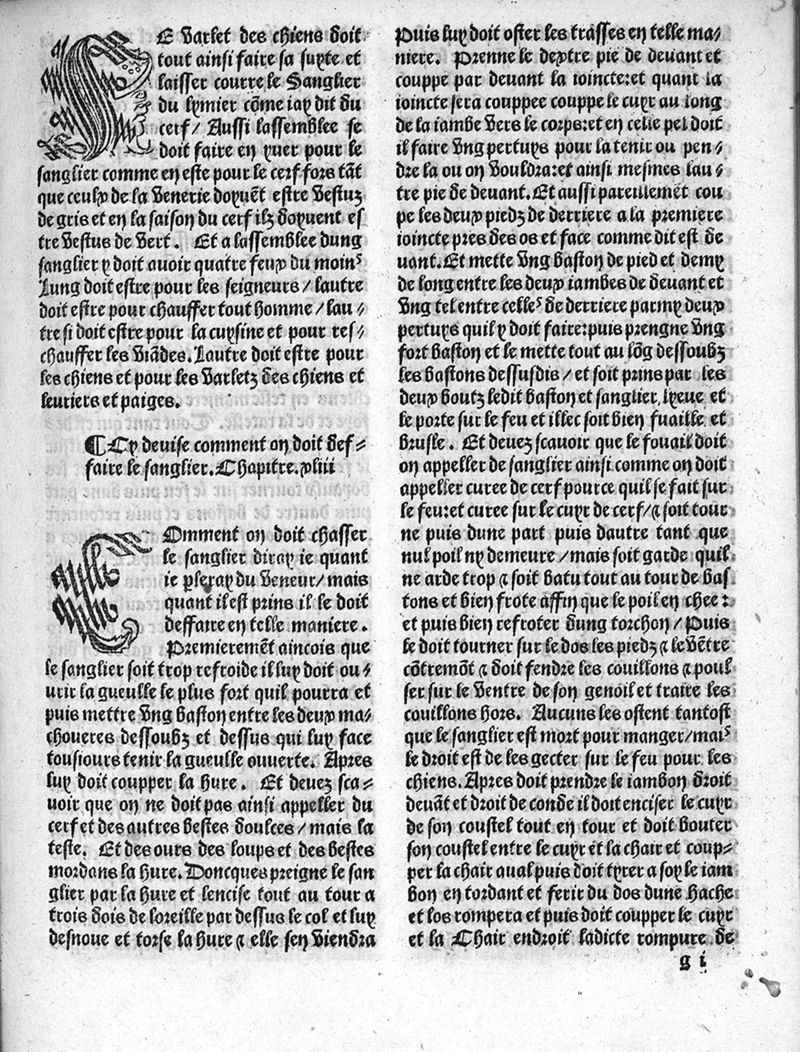 LE Varlet des chiens doit
tout ainsi faire sa suyte et
laisser courre le Sanglier
du lymier cõme iay dit du
cerf / Aussi lassemblee se
doit faire en yuer pour le
sanglier comme en este pour le cerf fors tãt
que ceulx de la Venerie doyuẽt estre Vestuz
de gris et en la saison du cerf ilz doyuent es
tre Vestus de Vert. Et a lassemblee dung
sanglier y doit auoir quatre feux du moinˢ
Lung doit estre pour les seigneurs / lautre
doit estre pour chauffer tout homme / lau⸗
tre si doit estre pour la cuysine et pour res⸗
chauffer les Viãdes. Lautre doit estre pour
les chiens et pour les Varletz des chiens et
leuriers et paiges.
¶ Cy deuise comment on doit def⸗
faire le sanglier. Chapitre. xliii
COmment on doit chasser
le sanglier diray ie quant
ie ꝑleray du Veneur / mais
quant il est prins il le doit
deffaire en telle maniere.
Premieremẽt aincois que
le sanglier soit trop refroide il luy doit ou⸗
urir la gueulle le plus fort quil pourra et
puis mettre Vng baston entre les deux ma⸗
choueres dessoubz et dessus qui luy face
tousiours tenir la gueulle ouuerte. Apres
luy doit coupper la hure. Et deuez sca⸗
uoir que on ne doit pas ainsi appeller du
cerf et des autres bestes doulces / mais la
teste. Et des ours des loups et des bestes
mordans la hure. Doncques preigne le san
glier par la hure et lencise tout au tour a
trois dois de loreille par dessus le col et luy
desnoue et torse la hure ⁊ elle sen Viendra
Puis luy doit oster les trasses en telle ma⸗
niere. Prenne le dextre pie de deuant et
couppe par deuant la ioincte: et quant la
ioincte sera couppee couppe le cuyr au long
de la iambe Vers le corps: et en celle pel doit
il faire Vng pertuys pour la tenir ou pen⸗
dre la ou on Vouldra: et ainsi mesmes lau⸗
tre pie de deuant. Et aussi pareillemẽt cou
pe les deux piedz de derriere a la premiere
ioincte pres des os et face comme dit est de
uant. Et mette Vng baston de pied et demy
de long entre les deux iambes de deuant et
Vng tel entre celleˢ de derriere parmy deux
pertuys quil y doit faire: puis prengne Vng
fort baston et le mette tout au lõg dessoubz
les bastons dessusdis / et soit prins par les
deux boutz ledit baston et sanglier lyeue et
le porte sur le feu et illec soit bien fuaille et
brusle. Et deuez scauoir que le fouail doit
on appeller de sanglier ainsi comme on doit
appeller curee de cerf pource quil se fait sur
le feu: et curee sur le cuyr de cerf / ⁊ soit tour
ne puis dune part puis dautre tant que
nul poil ny demeure / mais soit garde quil
ne arde trop ⁊ soit batu tout au tour de bas⸗
tons et bien frote affin que le poil en chee:
et puis bien refroter dung torchon / Puis
le doit tourner sur le dos les piedz ⁊ le Vẽtre
cõtremõt ⁊ doit fendre les couillons ⁊ poul
ser sur le Ventre de son genoil et traire les
couillons hors. Aucuns les ostent tantost
que le sanglier est mort pour manger / maiˢ
le droit est de les gecter sur le feu pour les
chiens. Apres doit prendre le iambon droit
deuãt et droit de conde il doit enciser le cuyr
de son coustel tout en tour et doit bouter
son coustel entre le cuyr et la chair et coup⸗
per la chair aual puis doit tyrer a soy le iam
bon en tordant et ferir du dos dune hache
et los rompera et puis doit coupper le cuyr
et la Chair endroit ladicte rompure de
g i